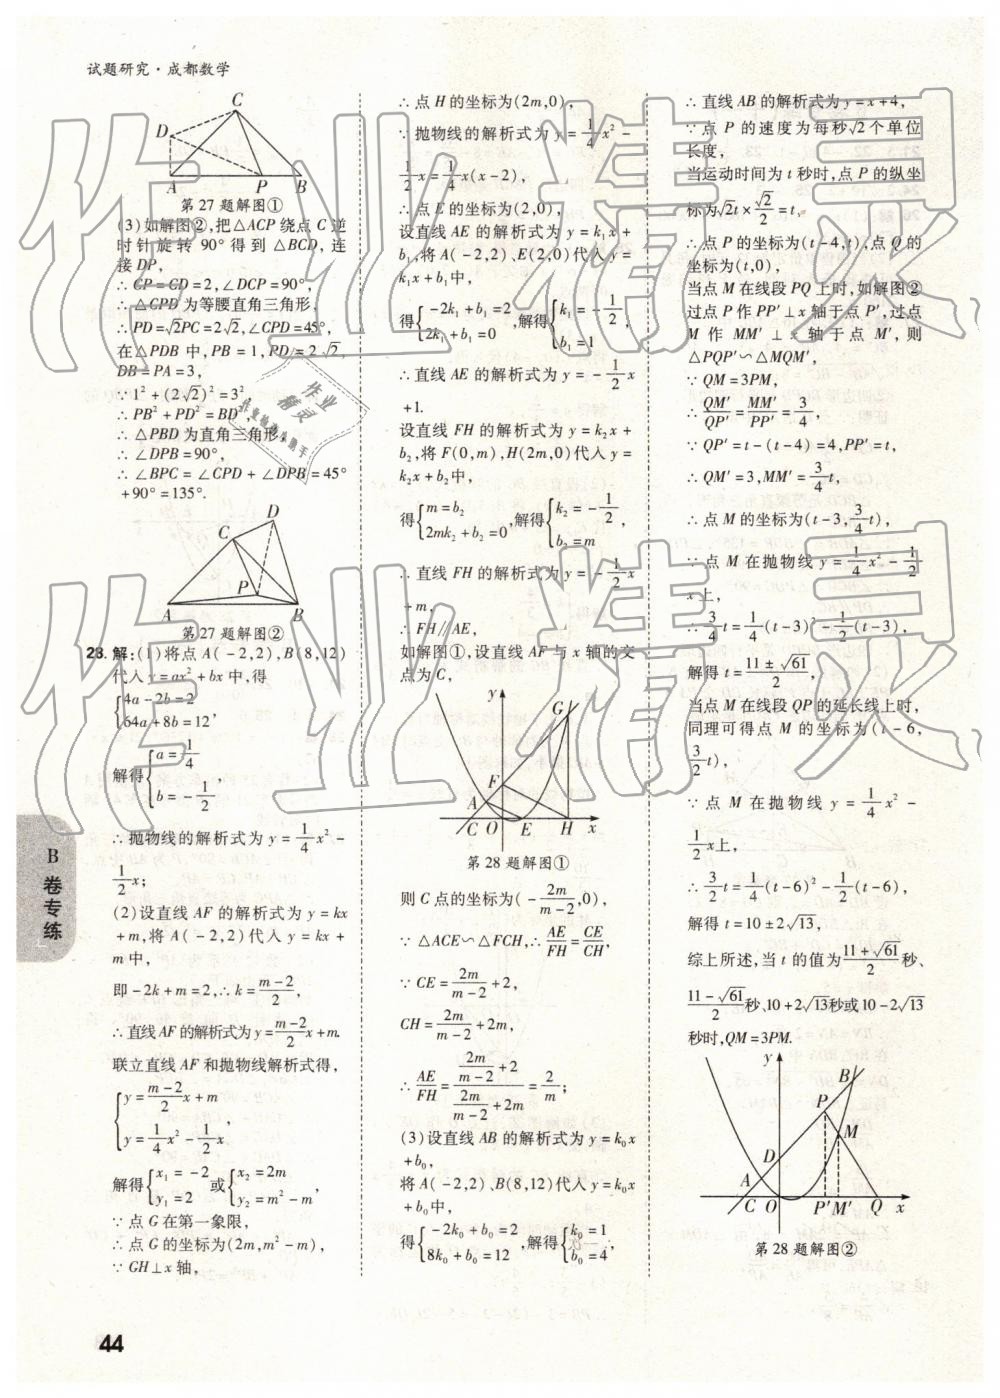 试题研究·成都数学
C
D
A
P
B
第27题解图①
(3)如解图②,把△ACP绕点C逆
时针旋转90°得到△BCD,连
接DP,
∴CP=CD=2,∠DCP=90°,
∴△CPD为等腰直角三角形,
∴PD=√2PC=2√2,∠CPD=45°,
在△PDB中,PB=1,PD=2√2,
DB=PA=3,
∵1²+(2√2)²=3²,
∴PB²+PD²=BD²,
∴△PBD为直角三角形,
∴∠DPB=90°,
∴∠BPC=∠CPD+∠DPB=45°
+90°=135°.
D
C
P
A
B
第27题解图②
28.解:(1)将点A(-2,2),B(8,12)
代入y=ax²+bx中,得
{4a-2b=2
64a+8b=12,
解得{a=1/4
b=-1/2,
∴抛物线的解析式为y=1/4x²-
1/2x;
(2)设直线AF的解析式为y=kx
+m,将A(-2,2)代入y=kx+
m中,
即-2k+m=2,∴k=(m-2)/2,
∴直线AF的解析式为y=(m-2)/2x+m.
联立直线AF和抛物线解析式得,
{y=(m-2)/2x+m
y=1/4x²-1/2x,
解得{x₁=-2
y₁=2或{x₂=2m
y₂=m²-m,
∵点G在第一象限,
∴点G的坐标为(2m,m²-m),
∵GH⊥x轴,
∴点H的坐标为(2m,0),
∵抛物线的解析式为y=1/4x²-
1/2x=1/4x(x-2),
∴点E的坐标为(2,0),
设直线AE的解析式为y=k₁x+
b₁,将A(-2,2)、E(2,0)代入y=
k₁x+b₁中,
得{-2k₁+b₁=2
2k₁+b₁=0,解得{k₁=-1/2
b₁=1,
∴直线AE的解析式为y=-1/2x
+1.
设直线FH的解析式为y=k₂x+
b₂,将F(0,m)、H(2m,0)代入y=
k₂x+b₂中,
得{m=b₂
2mk₂+b₂=0,解得{k₂=-1/2
b₂=m,
∴直线FH的解析式为y=-1/2x
+m,
∴FH∥AE,
如解图①,设直线AF与x轴的交
点为C,
y
G
F
A
C O E H x
第28题解图①
则C点的坐标为(-2m/(m-2),0),
∵△ACE∽△FCH,∴AE/FH=CE/CH,
∵CE=2m/(m-2)+2,
CH=2m/(m-2)+2m,
∴AE/FH=(2m/(m-2)+2)/(2m/(m-2)+2m)=2/m;
(3)设直线AB的解析式为y=k₀x
+b₀,
将A(-2,2)、B(8,12)代入y=k₀x
+b₀中,
得{-2k₀+b₀=2
8k₀+b₀=12,解得{k₀=1
b₀=4,
∴直线AB的解析式为y=x+4,
∵点P的速度为每秒√2个单位
长度,
当运动时间为t秒时,点P的纵坐
标为√2t×√2/2=t,
∴点P的坐标为(t-4,t),点Q的
坐标为(t,0),
当点M在线段PQ上时,如解图②
过点P作PP′⊥x轴于点P′,过点
M作MM′⊥x轴于点M′,则
△PQP′∽△MQM′,
∵QM=3PM,
∴QM′/QP′=MM′/PP′=3/4,
∵QP′=t-(t-4)=4,PP′=t,
∴QM′=3,MM′=3/4t,
∴点M的坐标为(t-3,3/4t),
∵点M在抛物线y=1/4x²-1/2
x上,
∴3/4t=1/4(t-3)²-1/2(t-3),
解得t=(11±√61)/2,
当点M在线段QP的延长线上时,
同理可得点M的坐标为(t-6,
3/2t),
∵点M在抛物线y=1/4x²-
1/2x上,
∴3/2t=1/4(t-6)²-1/2(t-6),
解得t=10±2√13,
综上所述,当t的值为(11+√61)/2秒、
(11-√61)/2秒、10+2√13秒或10-2√13
秒时,QM=3PM.
y
B
P
M
D
A
C O P′M′ Q x
第28题解图②
B
卷专练
44
作业精灵
作业精灵
作业
精灵